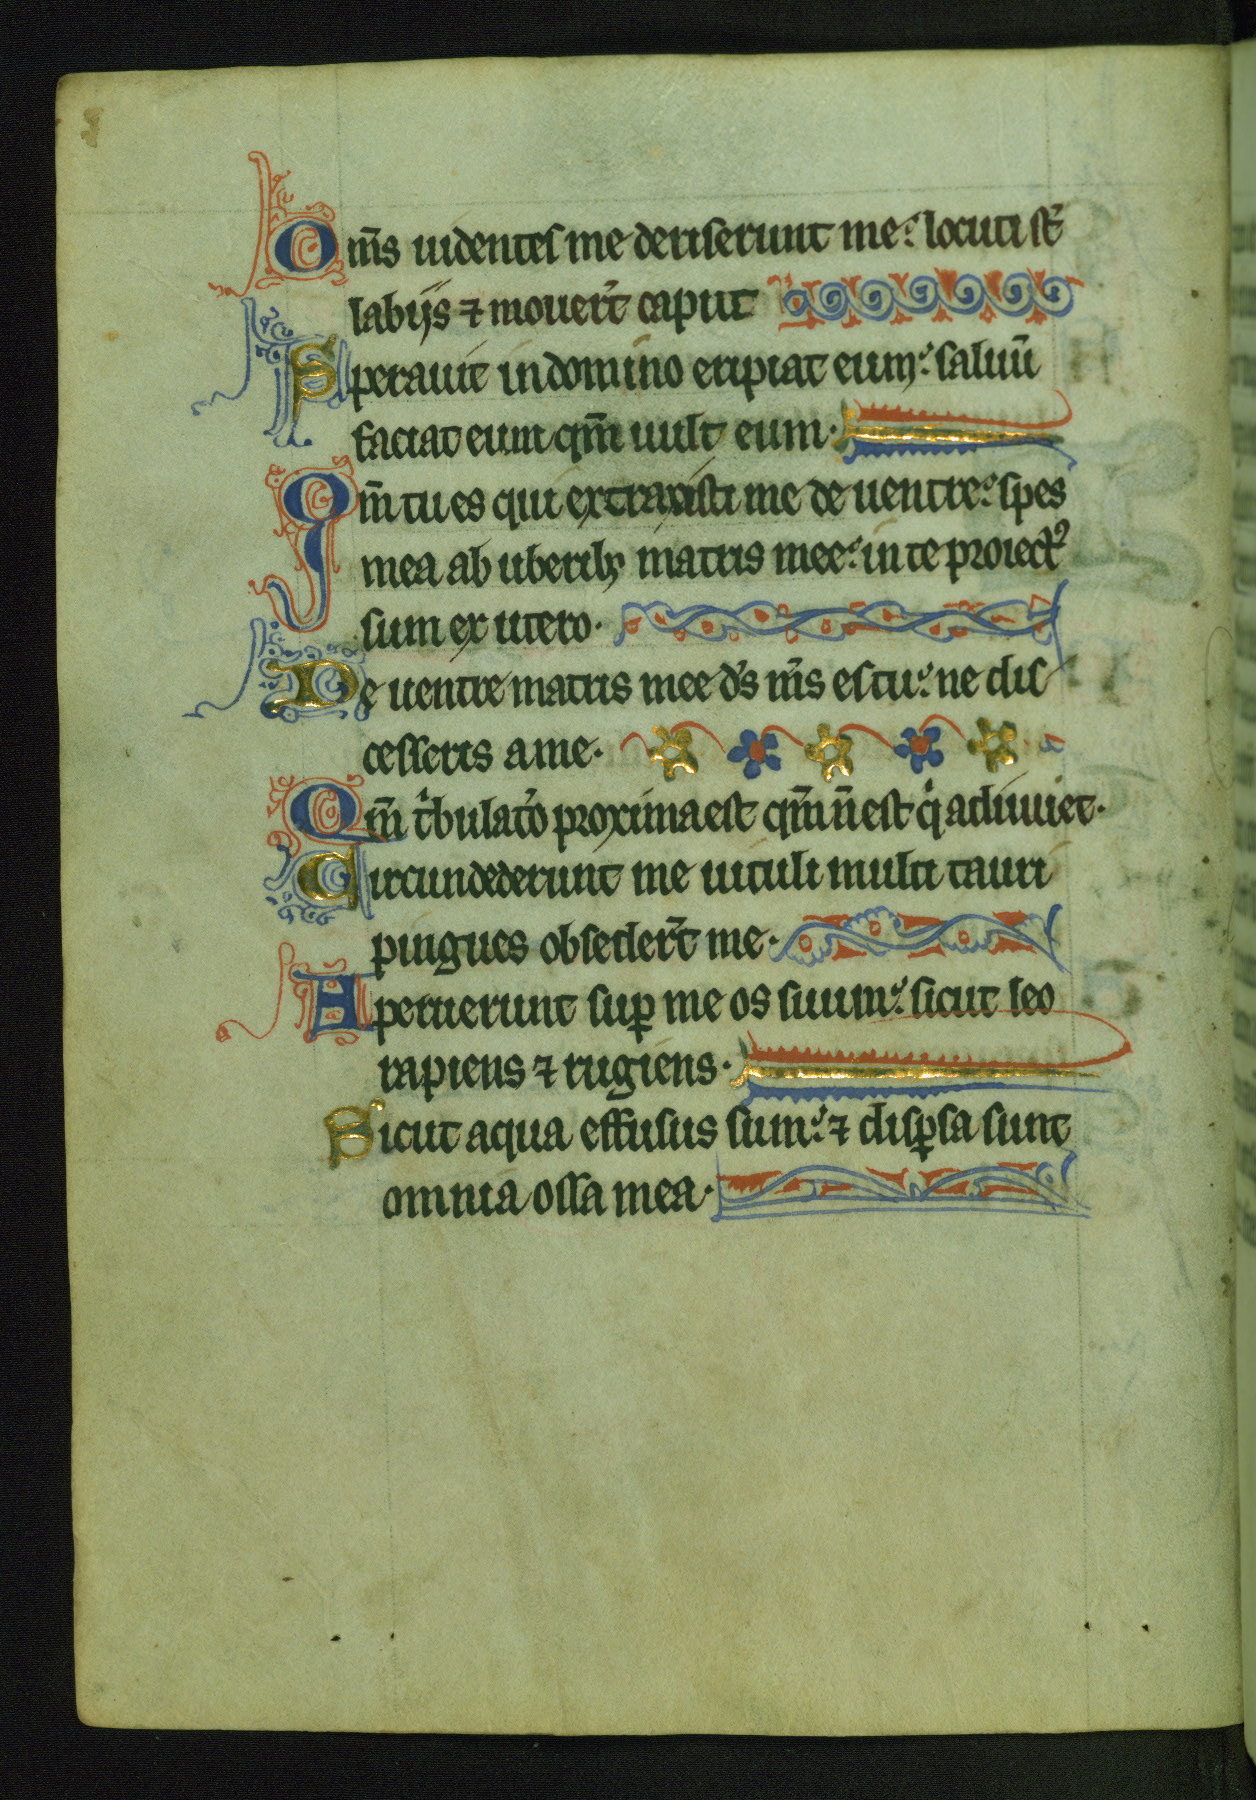 Om̅s uidentes me deriserunt me: locuti st̅
labijs ⁊ mouer̅t caput
Sperauit in domino eripiat eum: saluu̅
faciat eum qm̅ uult eum·
Qm̅ tu es qui extraxisti me de uentre: spes
mea ab uberibꝫ matris mee: in te proiectꝰ
sum ex utero·
De uentre matris mee ds̅ ms̅ es tu: ne dis
cesseris a me·
Qm̅ tͥbulatᷣo proxima est qm̅ n̅ est qͥ adiuuet·
Circundederunt me uituli multi tauri
pingues obseder̅t me·
Aperuerunt suꝑ me os suum: sicut leo
rapiens ⁊ rugiens·
Sicut aqua effusus sum: ⁊ disꝑsa sunt
omnia ossa mea·